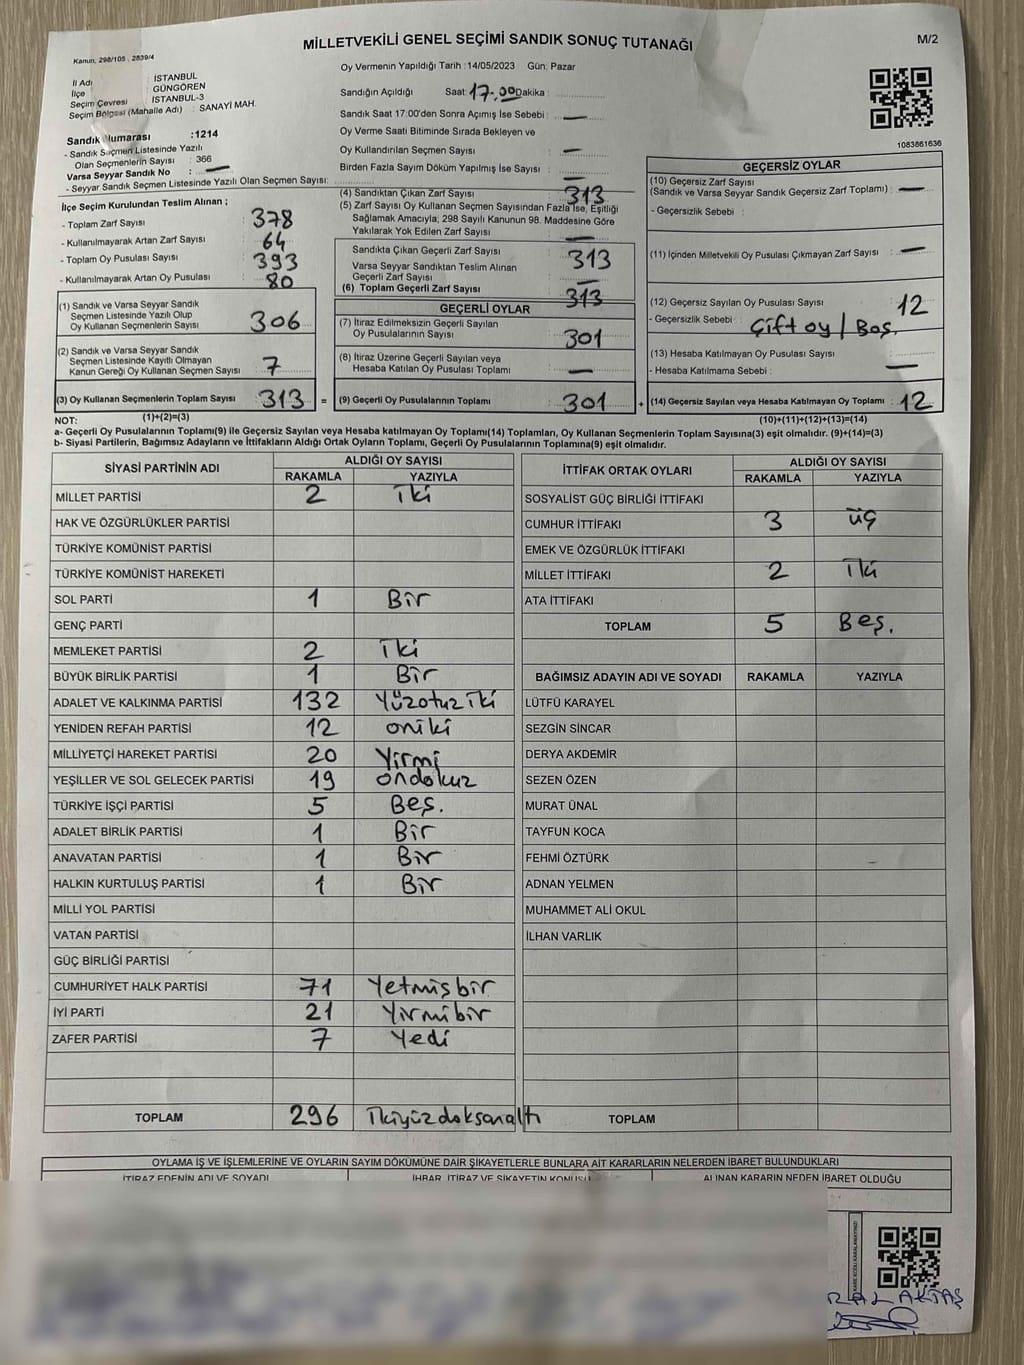 MİLLETVEKİLİ GENEL SEÇİMİ SANDIK SONUÇ TUTANAĞI
M/2
Kanun, 298/105 , 2839/4
Oy Vermenin Yapıldığı Tarih : 14/05/2023 Gün: Pazar
İl Adı : İSTANBUL
İlçe : GÜNGÖREN
Seçim Çevresi : İSTANBUL-3
Seçim Bölgesi (Mahalle Adı) : SANAYİ MAH.
Sandık Numarası :1214
- Sandık Seçmen Listesinde Yazılı
Olan Seçmenlerin Sayısı : 366
Varsa Seyyar Sandık No : —
- Seyyar Sandık Seçmen Listesinde Yazılı Olan Seçmen Sayısı:
Sandığın Açıldığı Saat: 17.00 Dakika :
Sandık Saat 17:00'den Sonra Açımış İse Sebebi : —
Oy Verme Saati Bitiminde Sırada Bekleyen ve
Oy Kullandırılan Seçmen Sayısı : —
Birden Fazla Sayım Döküm Yapılmış İse Sayısı : —
1083861636
İlçe Seçim Kurulundan Teslim Alınan ;
- Toplam Zarf Sayısı : 378
- Kullanılmayarak Artan Zarf Sayısı : 64
- Toplam Oy Pusulası Sayısı : 393
- Kullanılmayarak Artan Oy Pusulası : 80
(1) Sandık ve Varsa Seyyar Sandık
Seçmen Listesinde Yazılı Olup
Oy Kullanan Seçmenlerin Sayısı : 306
(2) Sandık ve Varsa Seyyar Sandık
Seçmen Listesinde Kayıtlı Olmayan
Kanun Gereği Oy Kullanan Seçmen Sayısı : 7
(3) Oy Kullanan Seçmenlerin Toplam Sayısı : 313 =
(1)+(2)=(3)
(4) Sandıktan Çıkan Zarf Sayısı : 313
(5) Zarf Sayısı Oy Kullanan Seçmen Sayısından Fazla İse, Eşitliği
Sağlamak Amacıyla; 298 Sayılı Kanunun 98. Maddesine Göre
Yakılarak Yok Edilen Zarf Sayısı : —
Sandıkta Çıkan Geçerli Zarf Sayısı : 313
Varsa Seyyar Sandıktan Teslim Alınan
Geçerli Zarf Sayısı : —
(6) Toplam Geçerli Zarf Sayısı : 313
GEÇERLİ OYLAR
(7) İtiraz Edilmeksizin Geçerli Sayılan
Oy Pusulalarının Sayısı : 301
(8) İtiraz Üzerine Geçerli Sayılan veya
Hesaba Katılan Oy Pusulası Toplamı : —
(9) Geçerli Oy Pusulalarının Toplamı : 301 +
GEÇERSİZ OYLAR
(10) Geçersiz Zarf Sayısı
(Sandık ve Varsa Seyyar Sandık Geçersiz Zarf Toplamı) : —
- Geçersizlik Sebebi :
(11) İçinden Milletvekili Oy Pusulası Çıkmayan Zarf Sayısı : —
(12) Geçersiz Sayılan Oy Pusulası Sayısı : 12
- Geçersizlik Sebebi : Çift oy / Boş.
(13) Hesaba Katılmayan Oy Pusulası Sayısı :
- Hesaba Katılmama Sebebi : —
(14) Geçersiz Sayılan veya Hesaba Katılmayan Oy Toplamı : 12
(10)+(11)+(12)+(13)=(14)
NOT:
a- Geçerli Oy Pusulalarının Toplamı(9) ile Geçersiz Sayılan veya Hesaba katılmayan Oy Toplamı(14) Toplamları, Oy Kullanan Seçmenlerin Toplam Sayısına(3) eşit olmalıdır. (9)+(14)=(3)
b- Siyasi Partilerin, Bağımsız Adayların ve İttifakların Aldığı Ortak Oyların Toplamı, Geçerli Oy Pusulalarının Toplamına(9) eşit olmalıdır.
SİYASİ PARTİNİN ADI ALDIĞI OY SAYISI
RAKAMLA YAZIYLA
MİLLET PARTİSİ 2 iki
HAK VE ÖZGÜRLÜKLER PARTİSİ
TÜRKİYE KOMÜNİST PARTİSİ
TÜRKİYE KOMÜNİST HAREKETİ
SOL PARTİ 1 Bir
GENÇ PARTİ
MEMLEKET PARTİSİ 2 iki
BÜYÜK BİRLİK PARTİSİ 1 Bir
ADALET VE KALKINMA PARTİSİ 132 Yüzotuz iki
YENİDEN REFAH PARTİSİ 12 oniki
MİLLİYETÇİ HAREKET PARTİSİ 20 Yirmi
YEŞİLLER VE SOL GELECEK PARTİSİ 19 ondokuz
TÜRKİYE İŞÇİ PARTİSİ 5 Beş.
ADALET BİRLİK PARTİSİ 1 Bir
ANAVATAN PARTİSİ 1 Bir
HALKIN KURTULUŞ PARTİSİ 1 Bir
MİLLİ YOL PARTİSİ
VATAN PARTİSİ
GÜÇ BİRLİĞİ PARTİSİ
CUMHURİYET HALK PARTİSİ 71 Yetmişbir
İYİ PARTİ 21 Yirmibir
ZAFER PARTİSİ 7 Yedi
TOPLAM 296 ikiyüzdoksanaltı
İTTİFAK ORTAK OYLARI ALDIĞI OY SAYISI
RAKAMLA YAZIYLA
SOSYALİST GÜÇ BİRLİĞİ İTTİFAKI
CUMHUR İTTİFAKI 3 üç
EMEK VE ÖZGÜRLÜK İTTİFAKI
MİLLET İTTİFAKI 2 iki
ATA İTTİFAKI
TOPLAM 5 Beş.
BAĞIMSIZ ADAYIN ADI VE SOYADI RAKAMLA YAZIYLA
LÜTFÜ KARAYEL
SEZGİN SİNCAR
DERYA AKDEMİR
SEZEN ÖZEN
MURAT ÜNAL
TAYFUN KOCA
FEHMİ ÖZTÜRK
ADNAN YELMEN
MUHAMMET ALİ OKUL
İLHAN VARLIK
TOPLAM
OYLAMA İŞ VE İŞLEMLERİNE VE OYLARIN SAYIM DÖKÜMÜNE DAİR ŞİKAYETLERLE BUNLARA AİT KARARLARIN NELERDEN İBARET BULUNDUKLARI
İTİRAZ EDENİN ADI VE SOYADI İHBAR, İTİRAZ VE ŞİKAYETİN KONUSU ALINAN KARARIN NEDEN İBARET OLDUĞU
AKTAŞ